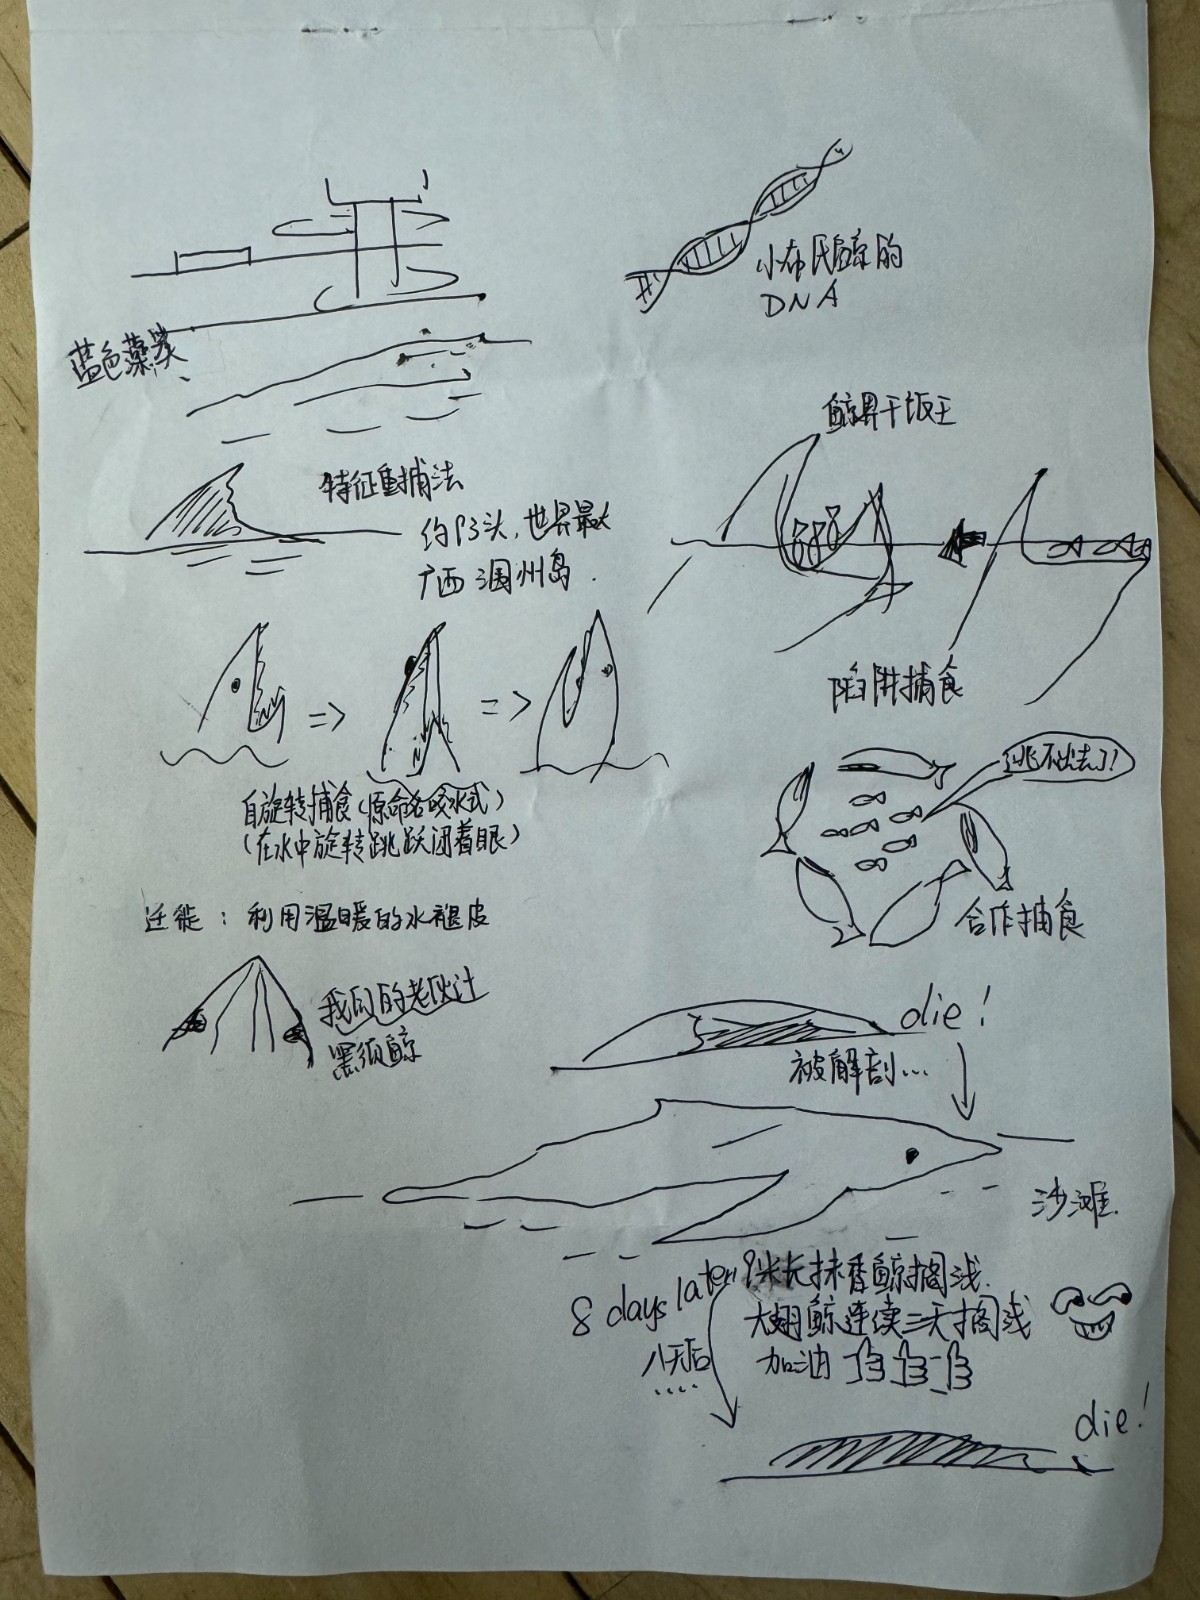 小布氏鲸的
DNA
蓝色藻类
鲸界干饭王
特征重捕法
约93头,世界最大
广西涠州岛.
陷阱捕食
自旋转捕食(原命名喷水式)
(在水中旋转跳跃闭着眼)
逃不出去了!
合作捕食
迁徙:利用温暖的水褪皮
我们的老伙计
黑须鲸
die!
被解剖...
沙滩.
8 days later
八天后
....
9米长抹香鲸搁浅.
大翅鲸连续三天搁浅
加油
die!